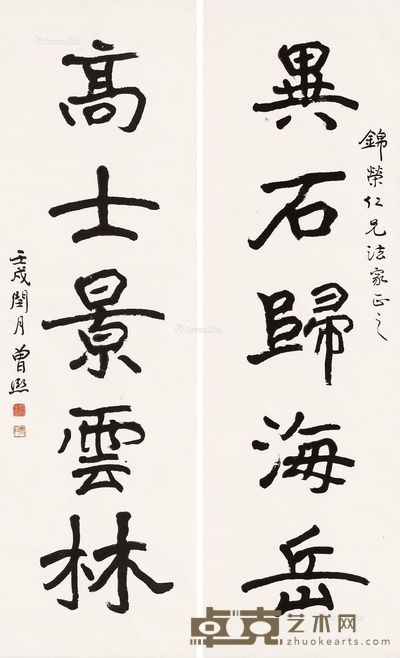 錦榮仁兄法家正之
異石歸海岳
高士景雲林
壬戌閏月曾熙
卓克艺术网
zhuokearts.com